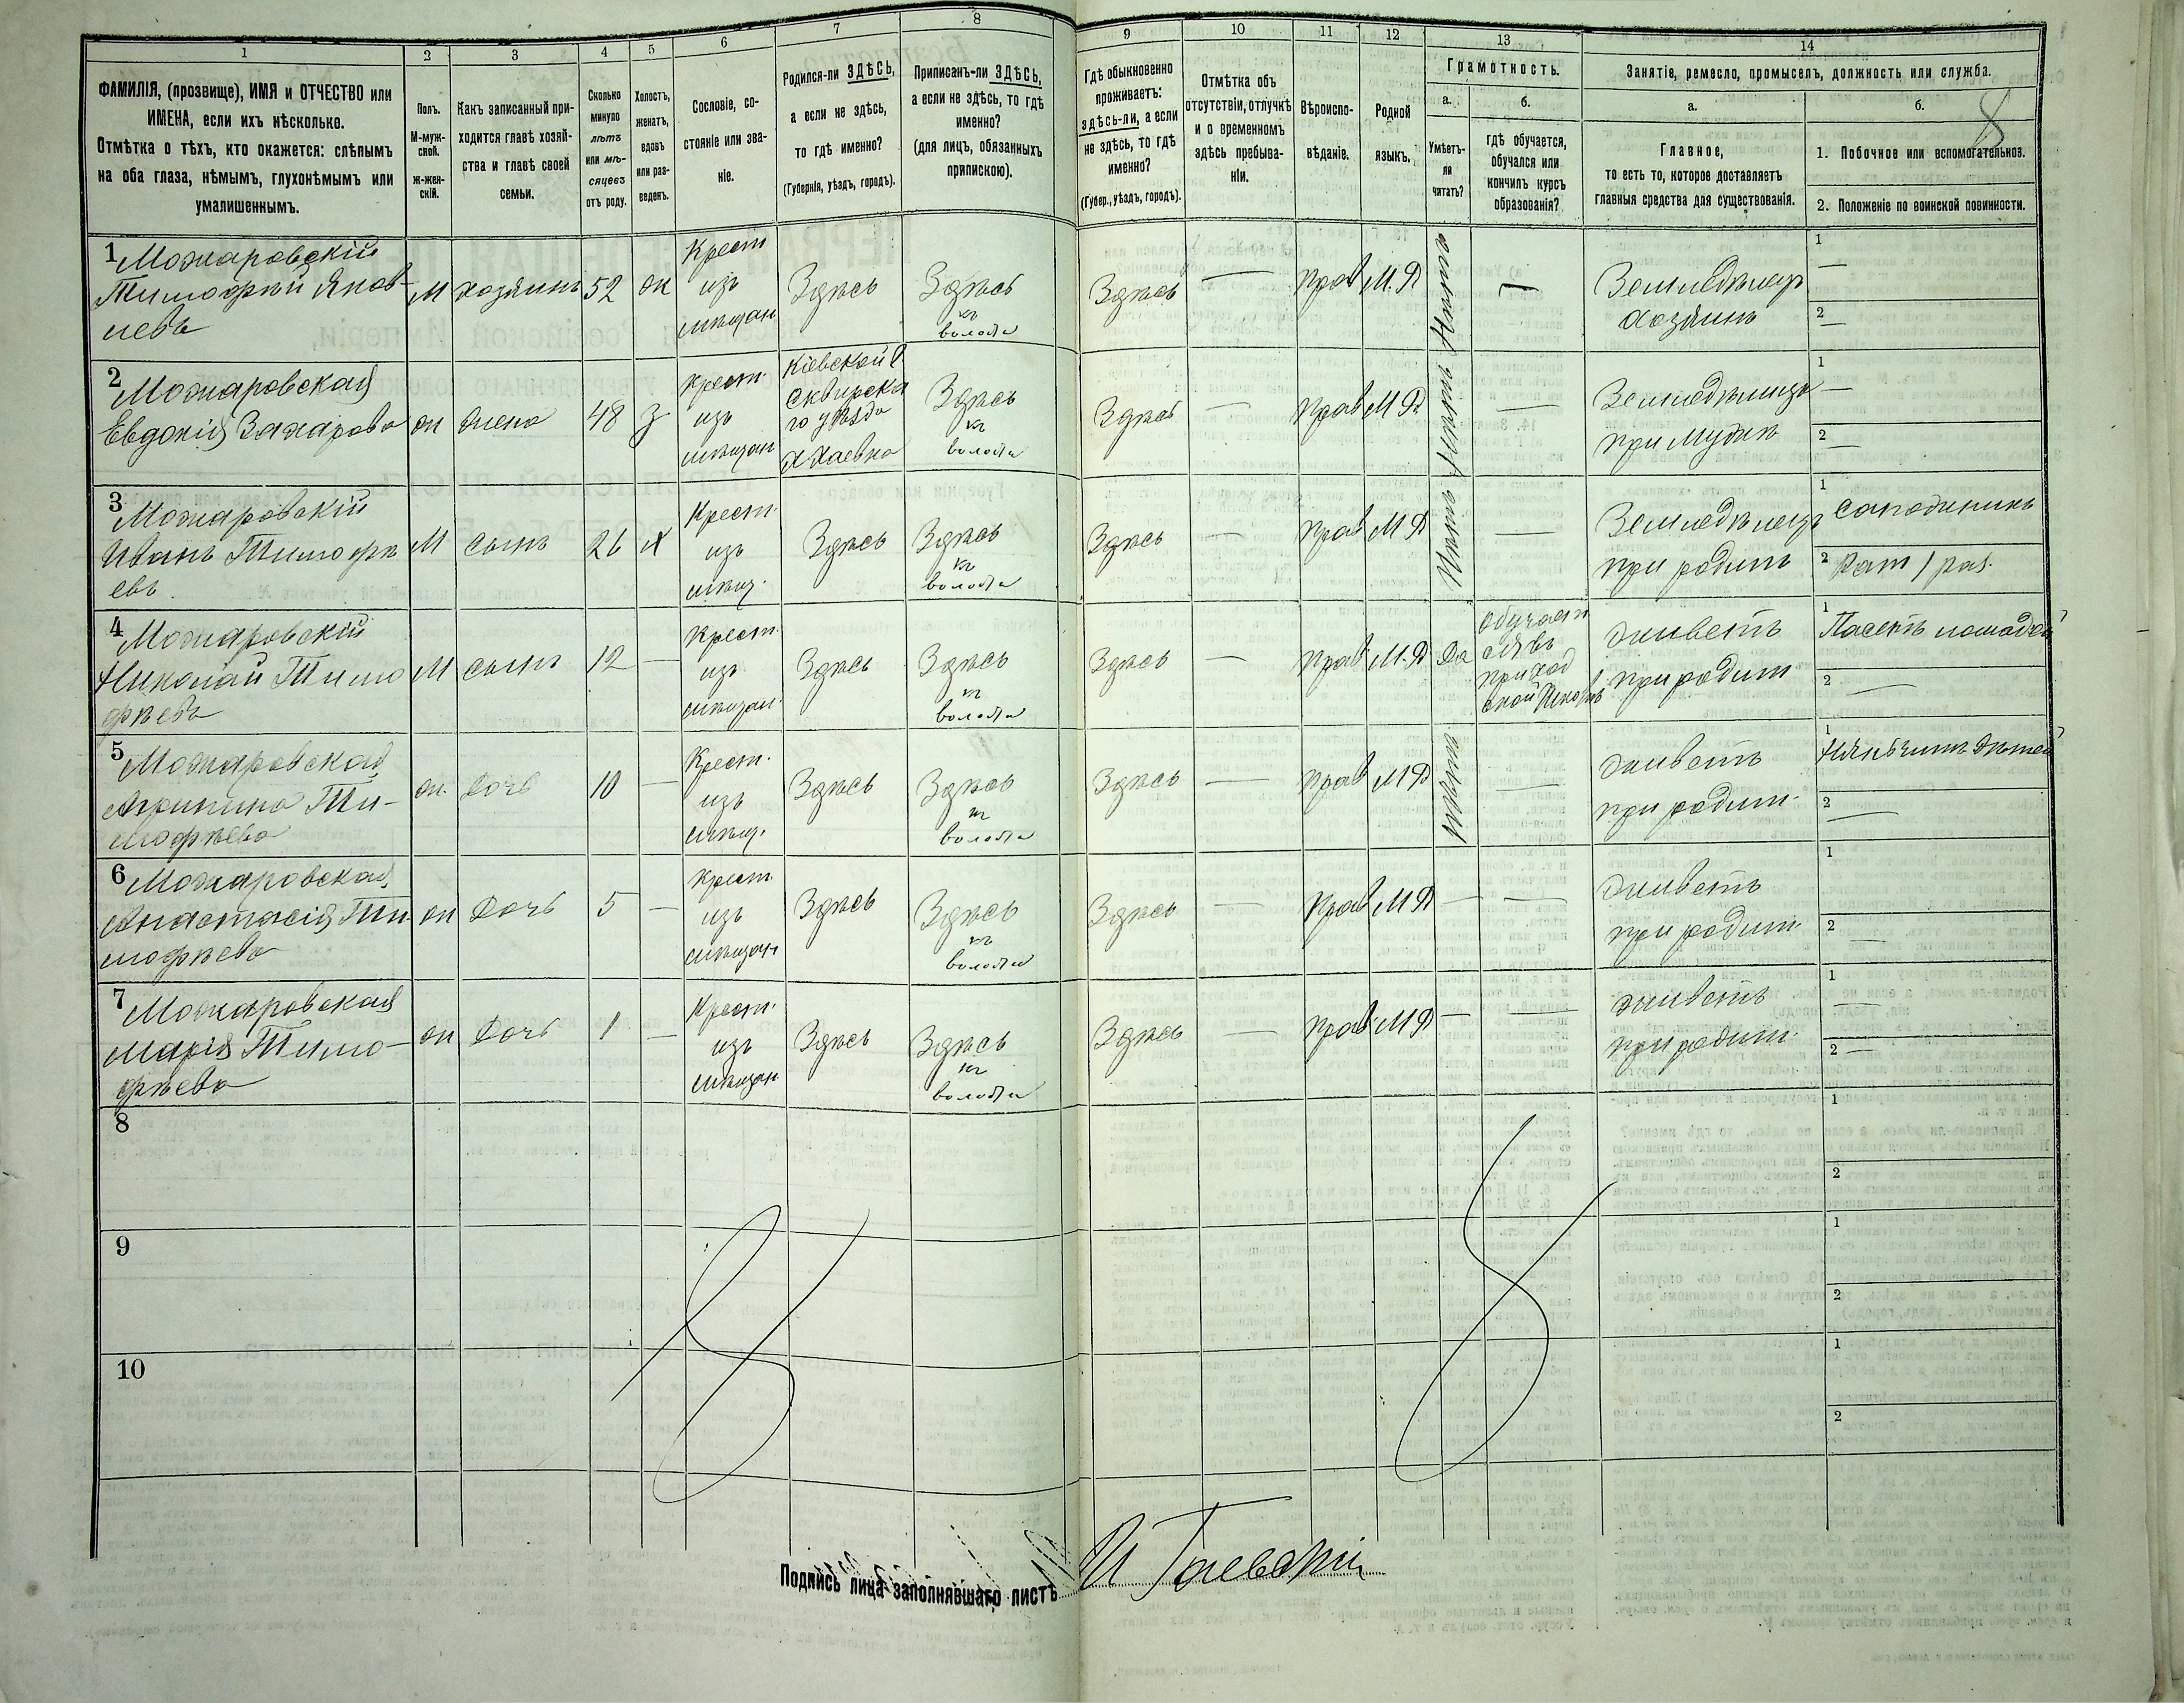 1
2
3
4
5
6
7
8
9
10
11
12
13
14
ФАМИЛІЯ, (прозвище), ИМЯ и ОТЧЕСТВО или
ИМЕНА, если ихъ нѣсколько.
Отмѣтка о тѣхъ, кто окажется: слѣпымъ
на оба глаза, нѣмымъ, глухонѣмымъ или
умалишеннымъ.
Полъ.
М-муж-
ской.
ж-жен-
скій.
Какъ записанный при-
ходится главѣ хозяй-
ства и главѣ своей
семьи.
Сколько
минуло
лѣтъ
или мѣ-
сяцевъ
отъ роду.
Холостъ,
женатъ,
вдовъ
или раз-
веденъ.
Сословіе, со-
стояніе или зва-
ніе.
Родился-ли ЗДѢСЬ,
а если не здѣсь,
то гдѣ именно?
(Губернія, уѣздъ, городъ).
Приписанъ-ли ЗДѢСЬ,
а если не здѣсь, то гдѣ
именно?
(для лицъ, обязанныхъ
припискою).
Гдѣ обыкновенно
проживаетъ:
здѣсь-ли, а если
не здѣсь, то гдѣ
именно?
(Губер., уѣздъ, городъ).
Отмѣтка объ
отсутствіи, отлучкѣ
и о временномъ
здѣсь пребыва-
ніи.
Вѣроиспо-
вѣданіе.
Родной
языкъ.
Грамотность.
а.
Умѣетъ-
ли
читать?
б.
гдѣ обучается,
обучался или
кончилъ курсъ
образованія?
Занятіе, ремесло, промыселъ, должность или служба.
а.
Главное,
то есть то, которое доставляетъ
главныя средства для существованія.
б.
8
1. Побочное или вспомогательное.
2. Положеніе по воинской повинности.
1 Можаровскій
Тимофѣй Яков-
левъ
М
хозяинъ
52
ж
Крест
изъ
мѣщан
Здѣсь
Здѣсь
къ
волости
Здѣсь
—
Прав
М.Р
Нѣтъ
—
Земледѣлецъ
хозяинъ
1
—
2
—
2 Можаровская
Евдокія Захарова
ж
жена
48
З
Крест.
изъ
мѣщан
Кіевской г
Сквирска
го уѣзда
Здѣсь
къ
волости
Здѣсь
—
Прав
М.Р
Нѣтъ
—
Земледѣлица
при мужѣ
1
—
2
—
3 Можаровскій
Иванъ Тимофѣ
евъ
М
сынъ
26
х
Крест.
изъ
мѣщ.
Здѣсь
Здѣсь
къ
волости
Здѣсь
—
Прав
М.Р
Нѣтъ
—
Земледѣлецъ
при родит
1
2 Рат / раз.
4 Можаровскій
Николай Тимо
фѣевъ
М
сынъ
12
—
Крест.
изъ
мѣщан.
Здѣсь
Здѣсь
къ
волости
Здѣсь
—
Прав
М.Р
Да
обучает
ся въ
приход
ской школѣ
живетъ
при родит
1 Пасетъ лошадей
2
—
5 Можаровская
Агрипина Ти-
мофѣева
ж.
дочь
10
—
Крест.
изъ
мѣщ.
Здѣсь
Здѣсь
къ
волости
Здѣсь
—
Прав
М.Р
Нѣтъ
—
живетъ
при родит.
1 Нянчитъ дѣтей
2
—
6 Можаровская
Анастасія Ти-
мофѣева
ж
дочь
5
—
Крест.
изъ
мѣщан
Здѣсь
Здѣсь
къ
волости
Здѣсь
—
Прав
М.Р
—
—
живетъ
при родит.
1
2
—
7 Можаровская
Марія Тимо-
фѣева
ж
дочь
1
—
Крест.
изъ
мѣщан
Здѣсь
Здѣсь
къ
волости
Здѣсь
—
Прав.
М.Р
—
—
живетъ
при родит.
1
—
2
—
8
1
2
9
1
2
10
1
2
Подпись лица заполнявшаго листъ И Гаевскій